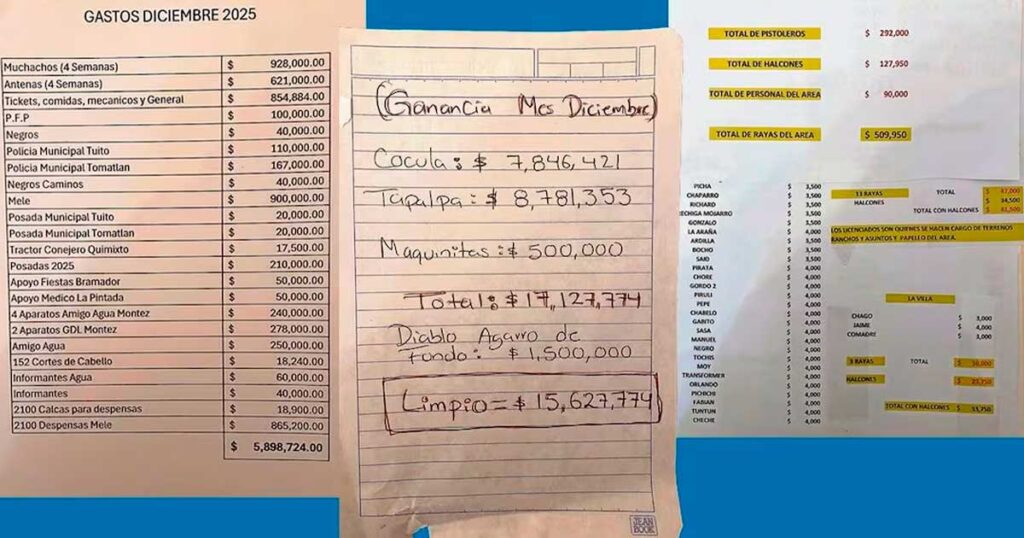 GASTOS DICIEMBRE 2025
Muchachos (4 Semanas) $ 928,000.00
Antenas (4 Semanas) $ 621,000.00
Tickets, comidas, mecanicos y General $ 854,884.00
P.F.P $ 100,000.00
Negros $ 40,000.00
Policia Municipal Tuito $ 110,000.00
Policia Municipal Tomatlan $ 167,000.00
Negros Caminos $ 40,000.00
Mele $ 900,000.00
Posada Municipal Tuito $ 20,000.00
Posada Municipal Tomatlan $ 20,000.00
Tractor Conejero Quimixto $ 17,500.00
Posadas 2025 $ 210,000.00
Apoyo Fiestas Bramador $ 50,000.00
Apoyo Medico La Pintada $ 50,000.00
4 Aparatos Amigo Agua Montez $ 240,000.00
2 Aparatos GDL Montez $ 278,000.00
Amigo Agua $ 250,000.00
152 Cortes de Cabello $ 18,240.00
Informantes Agua $ 60,000.00
Informantes $ 40,000.00
2100 Calcas para despensas $ 18,900.00
2100 Despensas Mele $ 865,200.00
$ 5,898,724.00
(Ganancia Mes Diciembre)
Cocula: $ 7,846,421
Tapalpa: $ 8,781,353
Maquinitas: $ 500,000
Total: $ 17,127,774
Diablo Agarro de
fondo: $ 1,500,000
Limpio = $ 15,627,774
JEAN BOOK
TOTAL DE PISTOLEROS $ 292,000
TOTAL DE HALCONES $ 127,950
TOTAL DE PERSONAL DEL AREA $ 90,000
TOTAL DE RAYAS DEL AREA $ 509,950
PICHA $ 3,500
CHAPARRO $ 3,500
RICHARD $ 3,500
ECHIGA MOJARRO $ 3,500
GONZALO $ 3,500
LA ARAÑA $ 4,000
ARDILLA $ 3,500
BOCHO $ 3,500
SAID $ 3,500
PIRATA $ 4,000
CHORE $ 4,000
GORDO 2 $ 4,000
PIRULI $ 4,000
PEPE $ 4,000
CHABELO $ 4,000
GABITO $ 4,000
SASA $ 4,000
MANUEL $ 4,000
NEGRO $ 4,000
TOCHIS $ 4,000
MOY $ 4,000
TRANSFORMER $ 4,000
ORLANDO $ 4,000
PICHICHI $ 4,000
FABIAN $ 4,000
TUNTUN $ 4,000
CHECHE $ 4,000
13 RAYAS TOTAL $ 47,000
HALCONES $ 34,500
TOTAL CON HALCONES $ 81,500
LOS LICENCIADOS SON QUIENES SE HACEN CARGO DE TERRENOS
RANCHOS Y ASUNTOS Y PAPELEO DEL AREA.
LA VILLA
CHAGO $ 3,000
JAIME $ 4,000
COMADRE $ 3,000
3 RAYAS TOTAL $ 10,000
HALCONES $ 23,750
TOTAL CON HALCONES $ 33,750